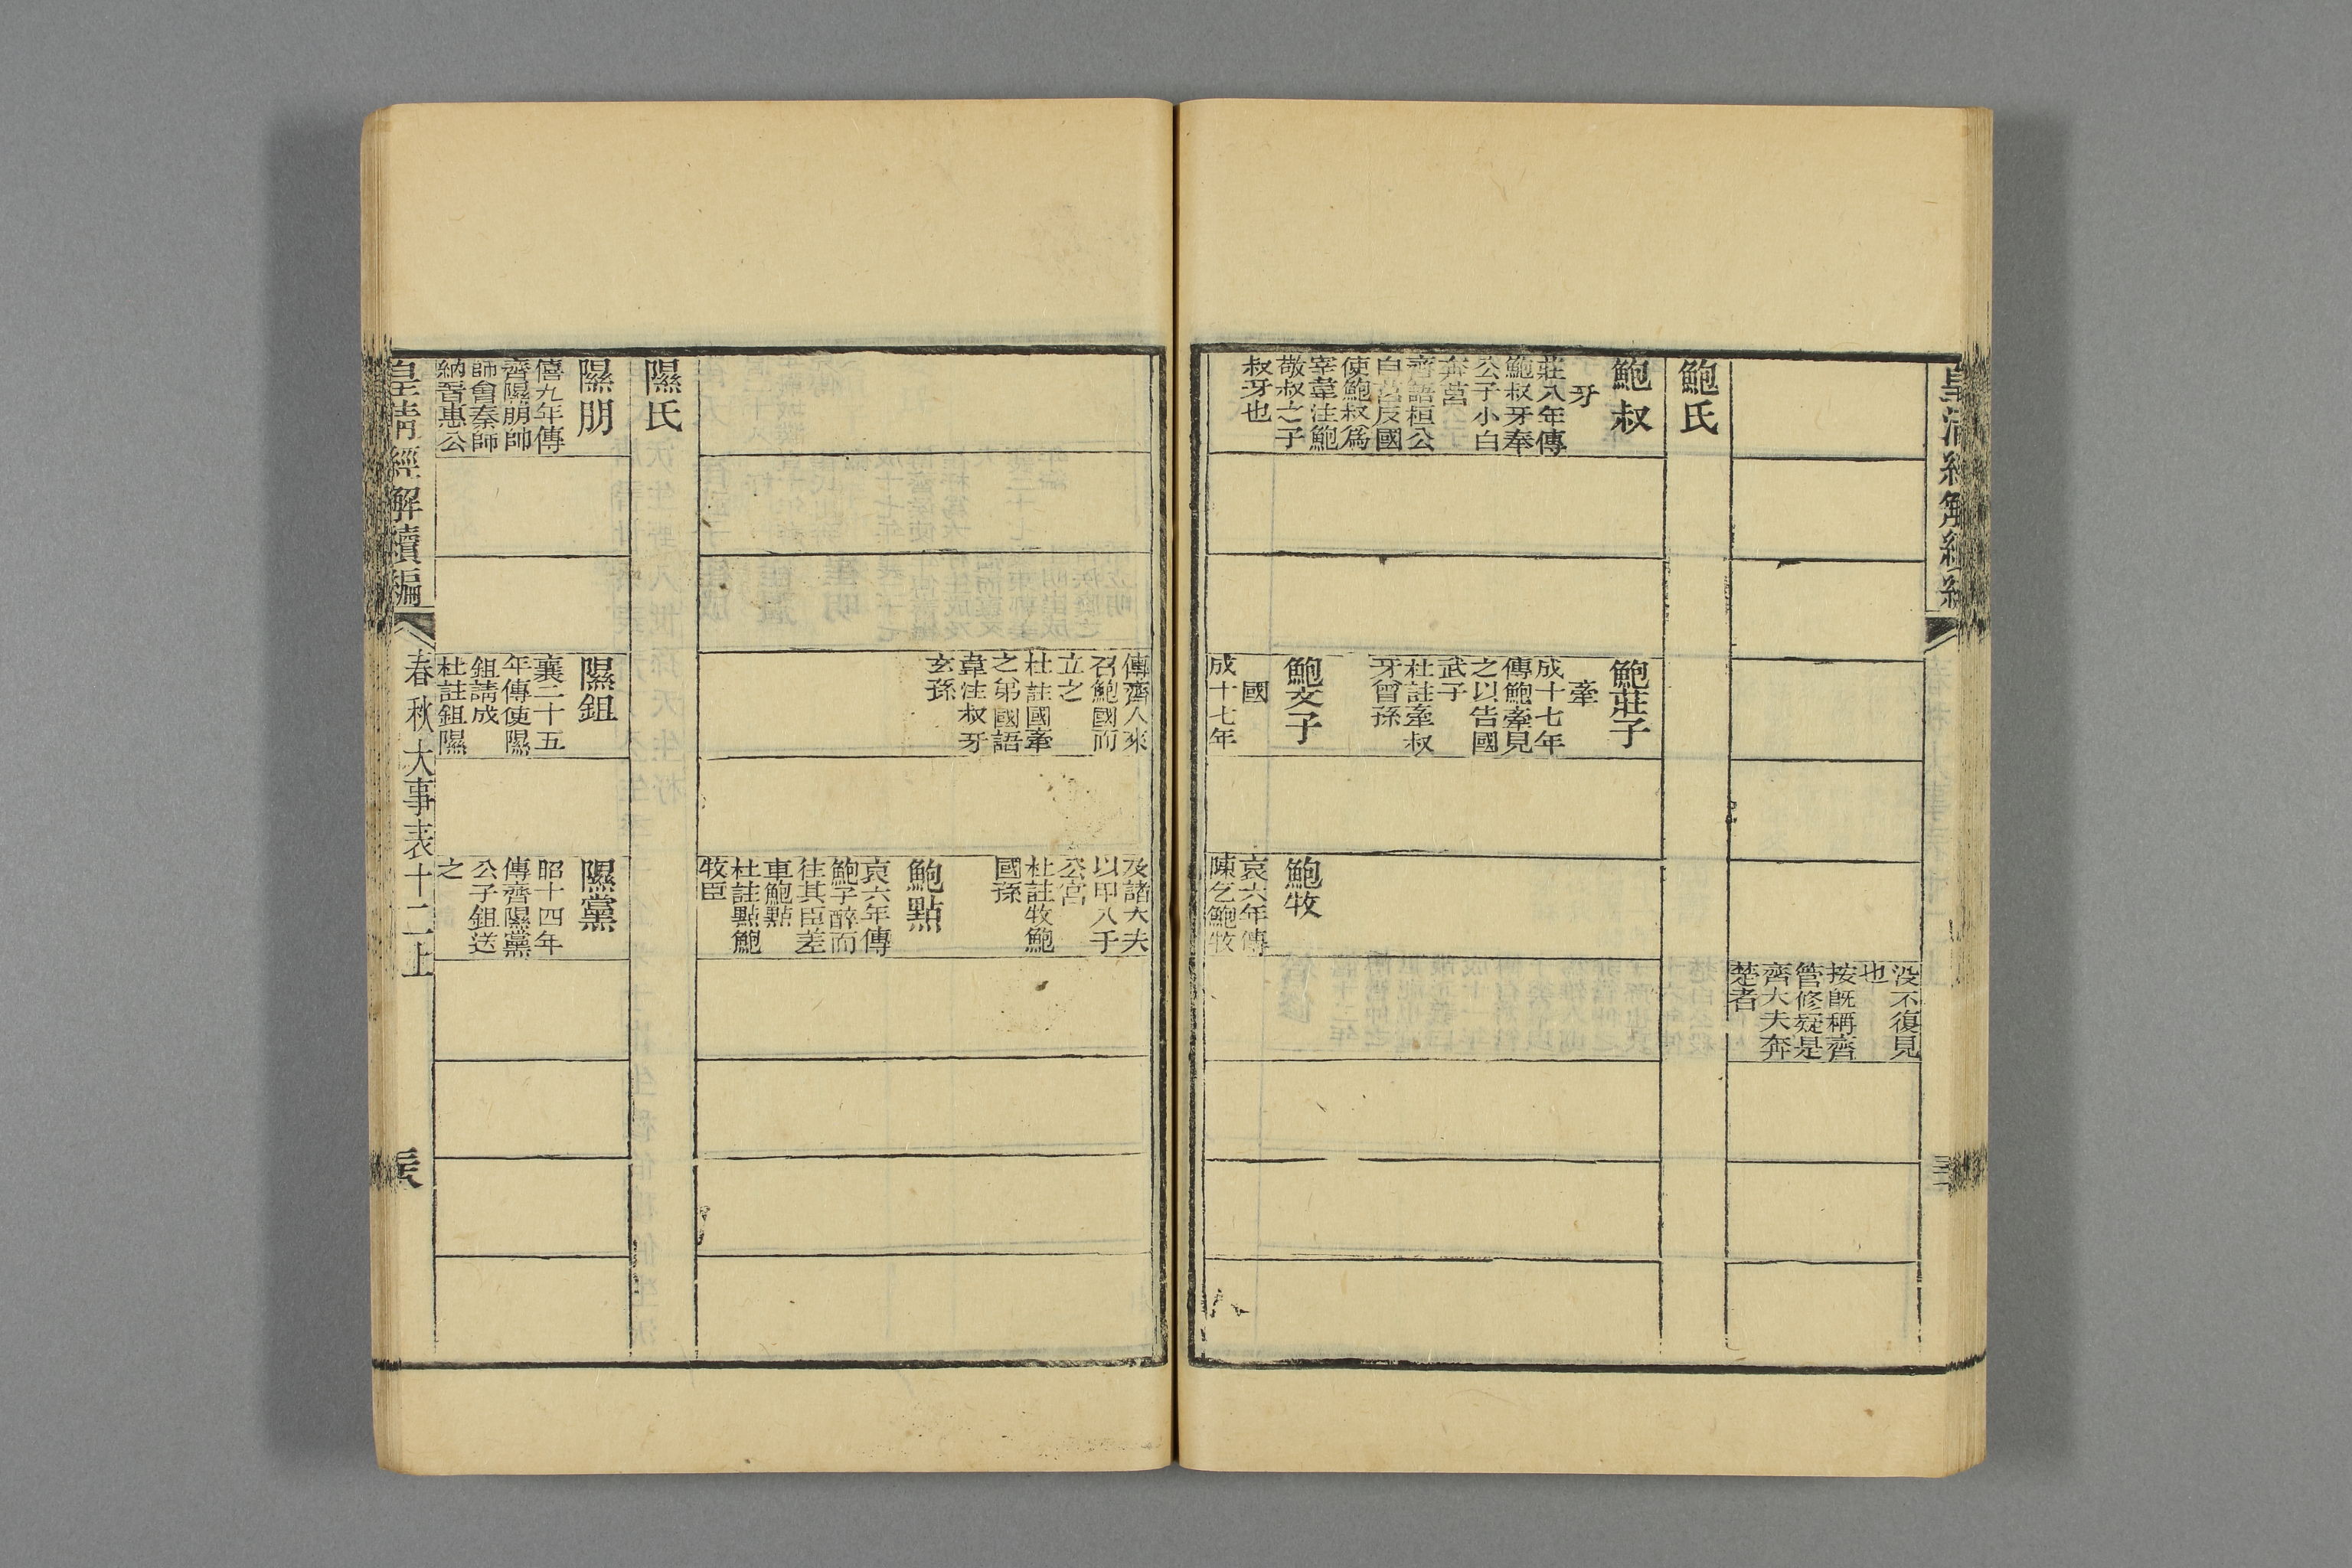 沒不復見
也
按旣稱齊
管修疑是
齊大夫奔
楚者
鮑氏
鮑叔
牙
莊八年傳
鮑叔牙奉
公子小白
奔莒
齊語桓公
自莒反國
使鮑叔爲
宰韋注鮑
敬叔之子
叔牙也
鮑莊子
牽
成十七年
傳鮑牽見
之以告國
武子
杜註牽叔
牙曾孫
鮑文子
國
成十七年
鮑牧
哀六年傳
陳乞鮑牧
傳齊人來
召鮑國而
立之
杜註國牽
之弟國語
韋注叔牙
玄孫
及諸大夫
以甲入于
公宮
杜註牧鮑
國孫
鮑點
哀六年傳
鮑子醉而
往其臣差
車鮑點
杜註點鮑
牧臣
隰氏
隰朋
僖九年傳
齊隰朋帥
師會秦師
納晉惠公
隰鉏
襄二十五
年傳使隰
鉏請成
杜註鉏隰
隰黨
昭十四年
傳齊隰黨
公子鉏送
之
皇清經解續編
春秋大事表十二上